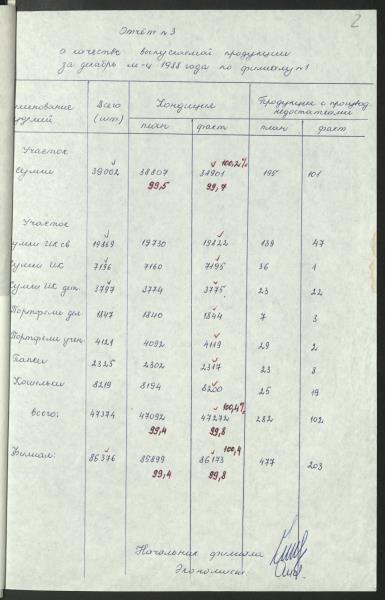 2
Отчёт №3
о качестве выпускаемой продукции
за декабрь м-ц 1988 года по филиалу №1
именование Всего Кондиция Продукция с производ.
(шт.) недостатками
план факт план факт
Участок
сумки 39002 38807 38901 100,2% 195 101
99,5 99,7
Участок
сумки ИК св 19869 19730 19822 139 47
сумки ИК 7196 7160 7195 36 1
сумки ИК дет. 3797 3774 3775 23 22
Портфели дел. 1847 1840 1844 7 3
Портфели учен. 4121 4092 4119 29 2
Папки 2325 2302 2317 23 8
Кошельки 8219 8194 8200 25 19
всего: 47374 47092 47272 100,4% 282 102
99,4 99,8
Филиал: 86376 85899 86173 100,4 477 203
99,4 99,8
Начальник филиала
Экономист